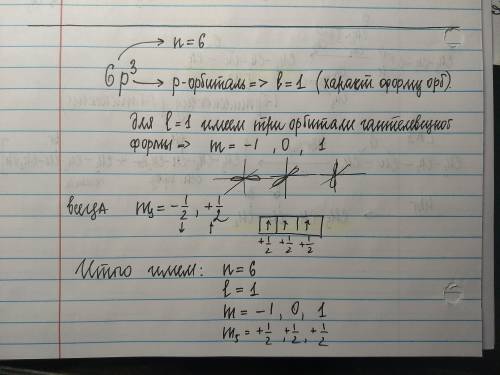 n=6
6p³
p-орбиталь => l=1 (характ. форму орб).
Для l=1 имеем три орбитали гантелевидной
формы => m = -1, 0, 1
всегда m_s = -1/2, +1/2
↓ ↑
↑ ↑ ↑
+1/2 +1/2 +1/2
Итого имеем: n=6
l=1
m = -1, 0, 1
m_s = +1/2, +1/2, +1/2